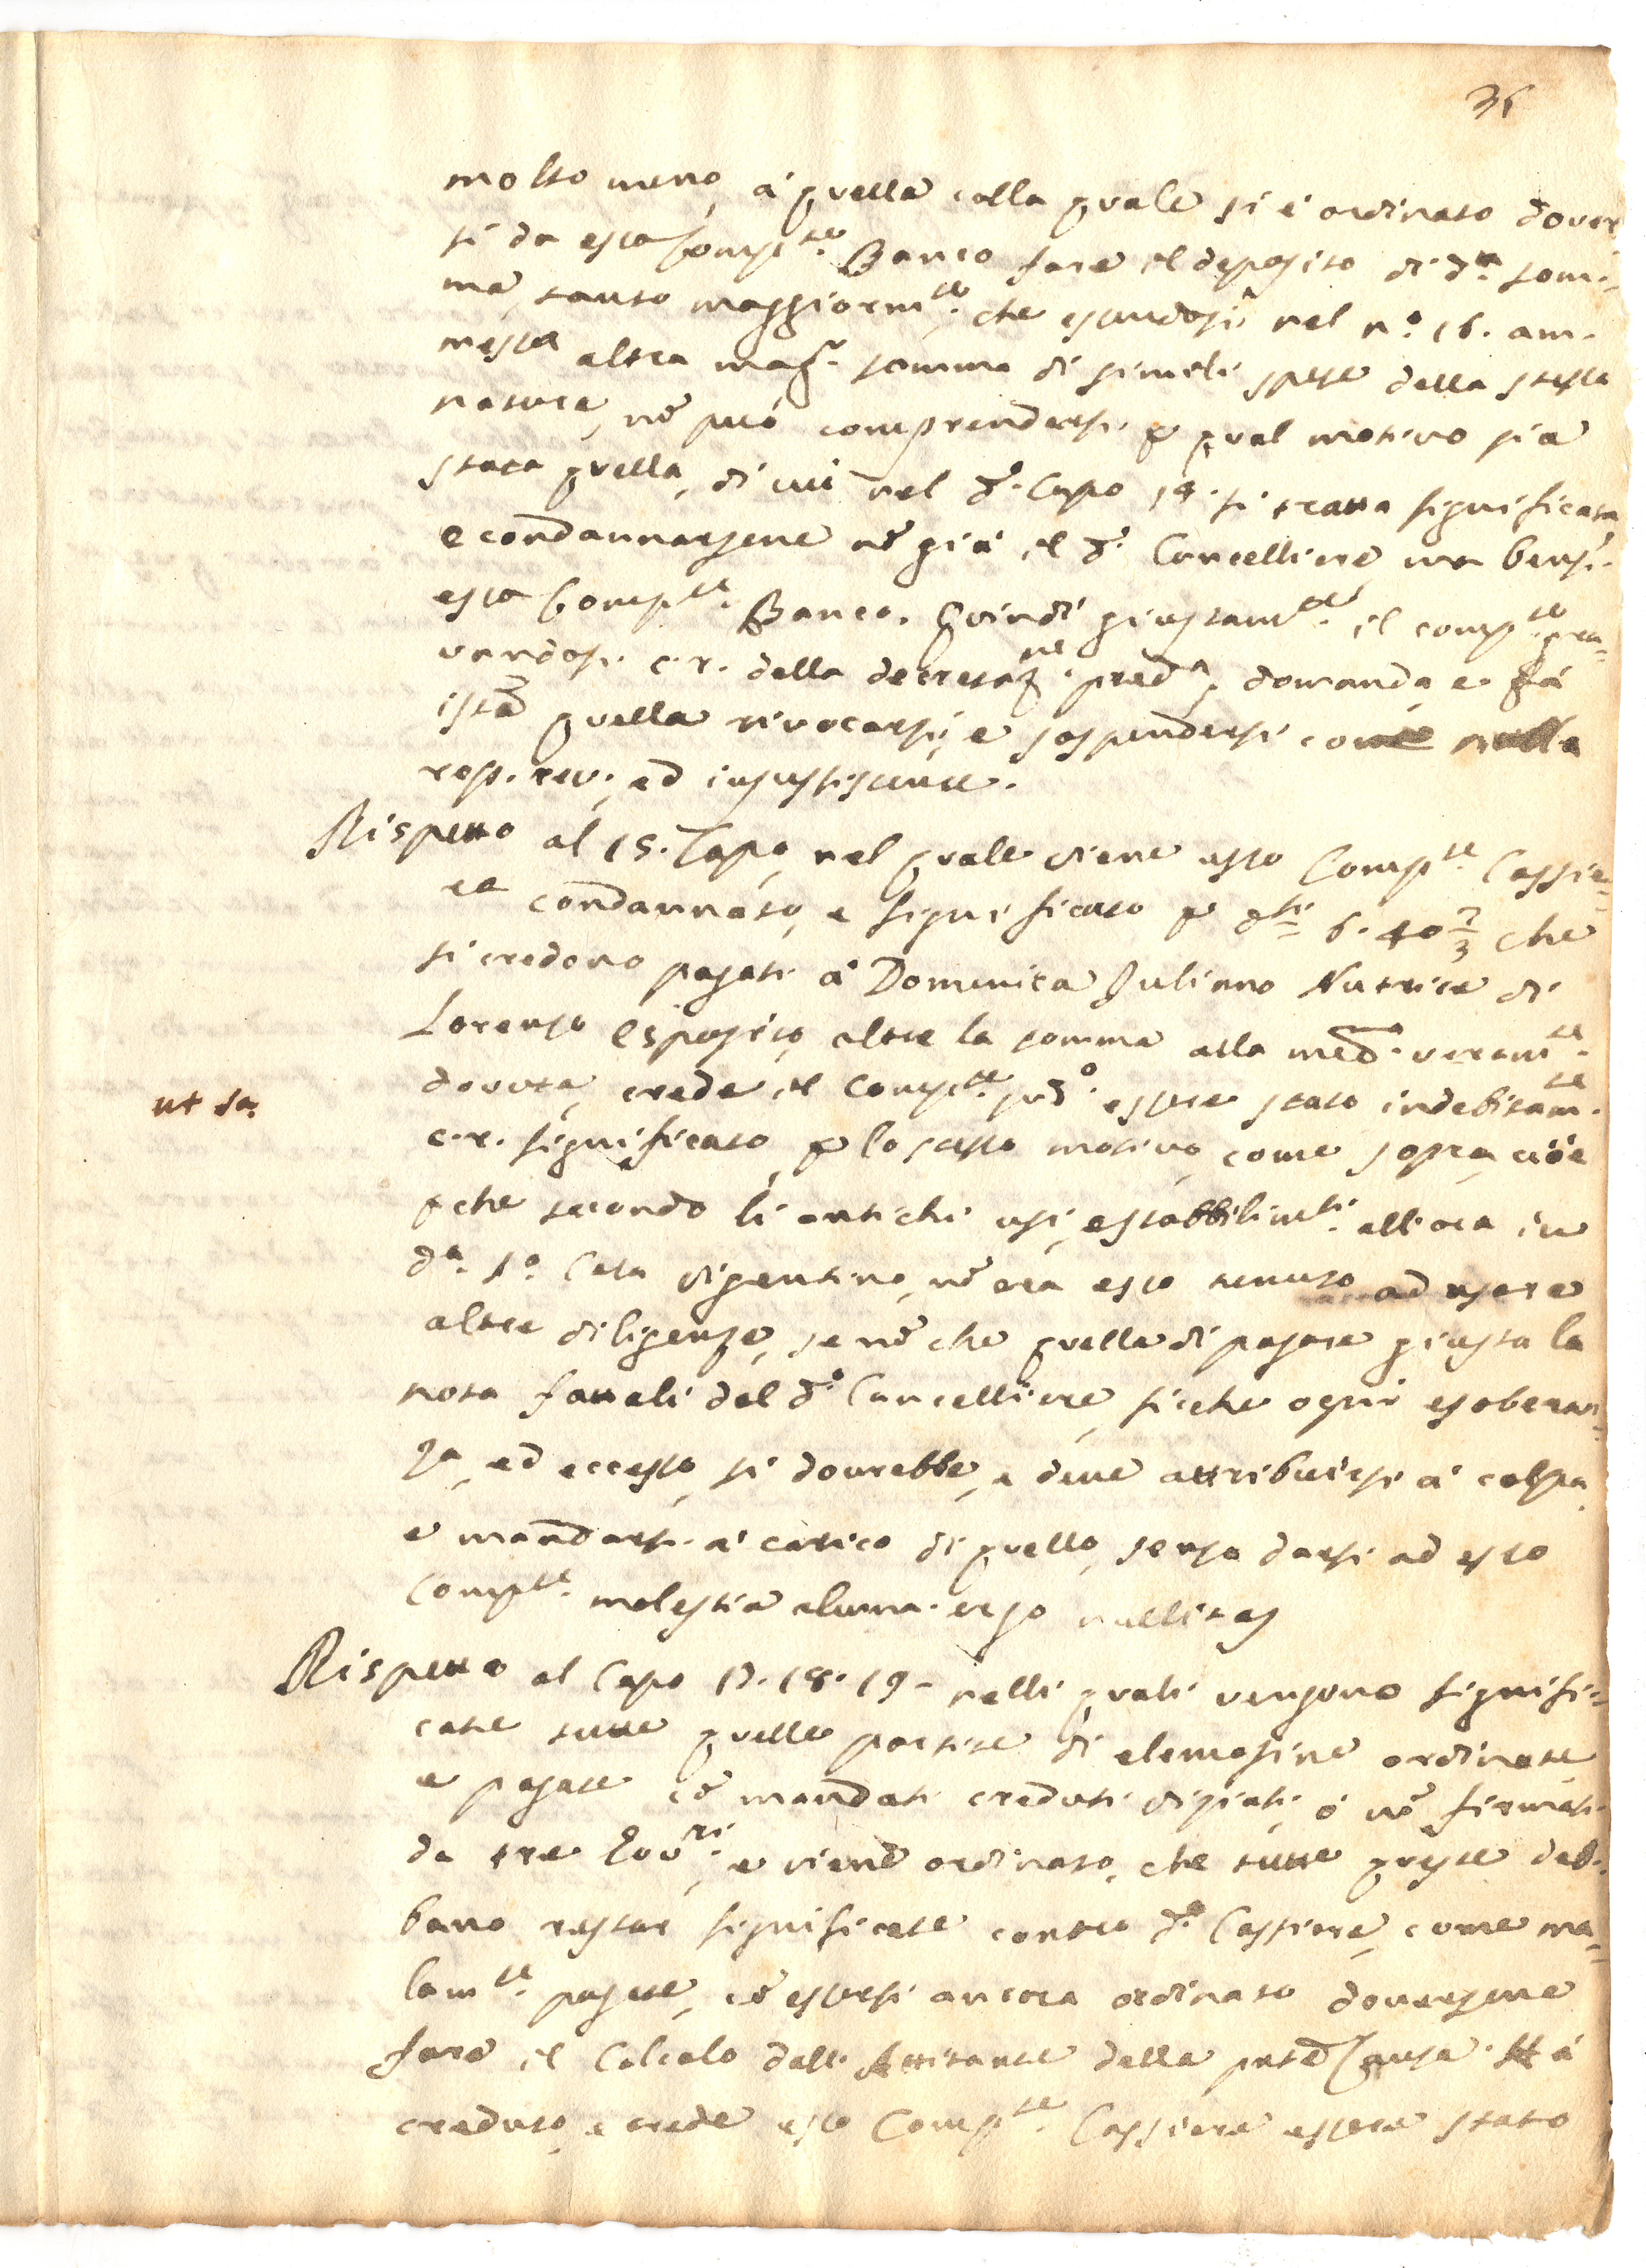 36
molto meno, à quella colla quale si è ordinato dover
si da esso Comp.te Banco fare il deposito di d.ta som=
ma, tanto maggiorm.te, che essendosi nel n.o 16. am=
messa altra mag.r somma di simili spese della stessa
natura, nõ può comprendersi p qual motivo sia
stata quella, di cui nel d.o Capo 14. si tratta significata
e condannarsene nõ già il d.o Cancelliere, ma bensì
esso Comp.te Banco. Quindi giustam.te il comp.te gra=
vandosi c.r. della decretaz.ne pred.a, domanda, e fà
istã quella rivocarsi, e sospendersi come nulla
resp.e rev.; ed insussistente.
Rispetto al 15. Capo, nel quale viene esso Comp.te Cassie=
re condannato, e significato p d.ti 6. 40 2/3 che
si credono pagati à Domenica Juliano Nutrice di
Lorenzo Esposito, oltre la somma alla med.a veram.te
dovuta, crede il Comp.te pnõ.o essere stato indebitam.te
ut sa.
c.r. significato, p lo stesso motivo, come sopra, cioè
pche secondo li antichi usi, e stabbilim.ti allora in
d.a S.a Casa vigentino, nõ era esso tenuto ad usare
altre diligenze, se nõ che quella di pagare giusta la
nota fattali dal d.o Cancelliere, sicche ogni esoberan=
za, ed eccesso, si dovrebbe, e deve attribuirsi à colpa,
e mandarsi à carico di quello, senza darsi ad esso
Comp.te molestia alcuna. ergo nullitas
Rispetto al Capo 17. 18. 19 - nelli quali vengono signifi=
cate tutte quelle partite di elemosine ordinate,
e pagate cõ mandati creduti viziati, ò nõ firmati
da tre Gov.ri, e viene ordinato, che tutte queste deb=
bano restar significate contro d.o Cassiere, come ma=
lam.te pagate, cõ essersi ancora ordinato doversene
fare il Calcolo dall' Attitante della pnte Causa. Hà
creduto, e crede esso Comp.te Cassiere essere stato